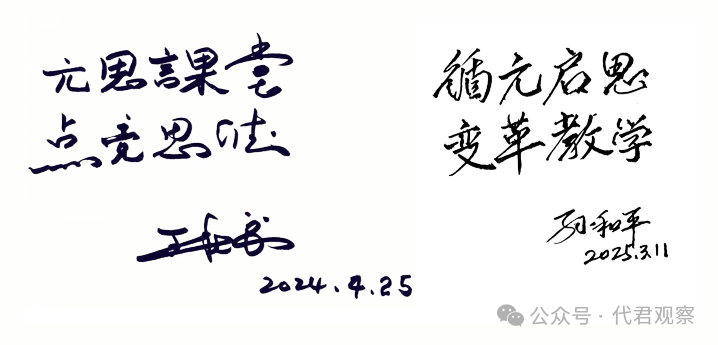 元思課堂
点亮思维
2024.4.25
循元启思
变革教学
孙和平
2025.3.11
公众号·代君观察